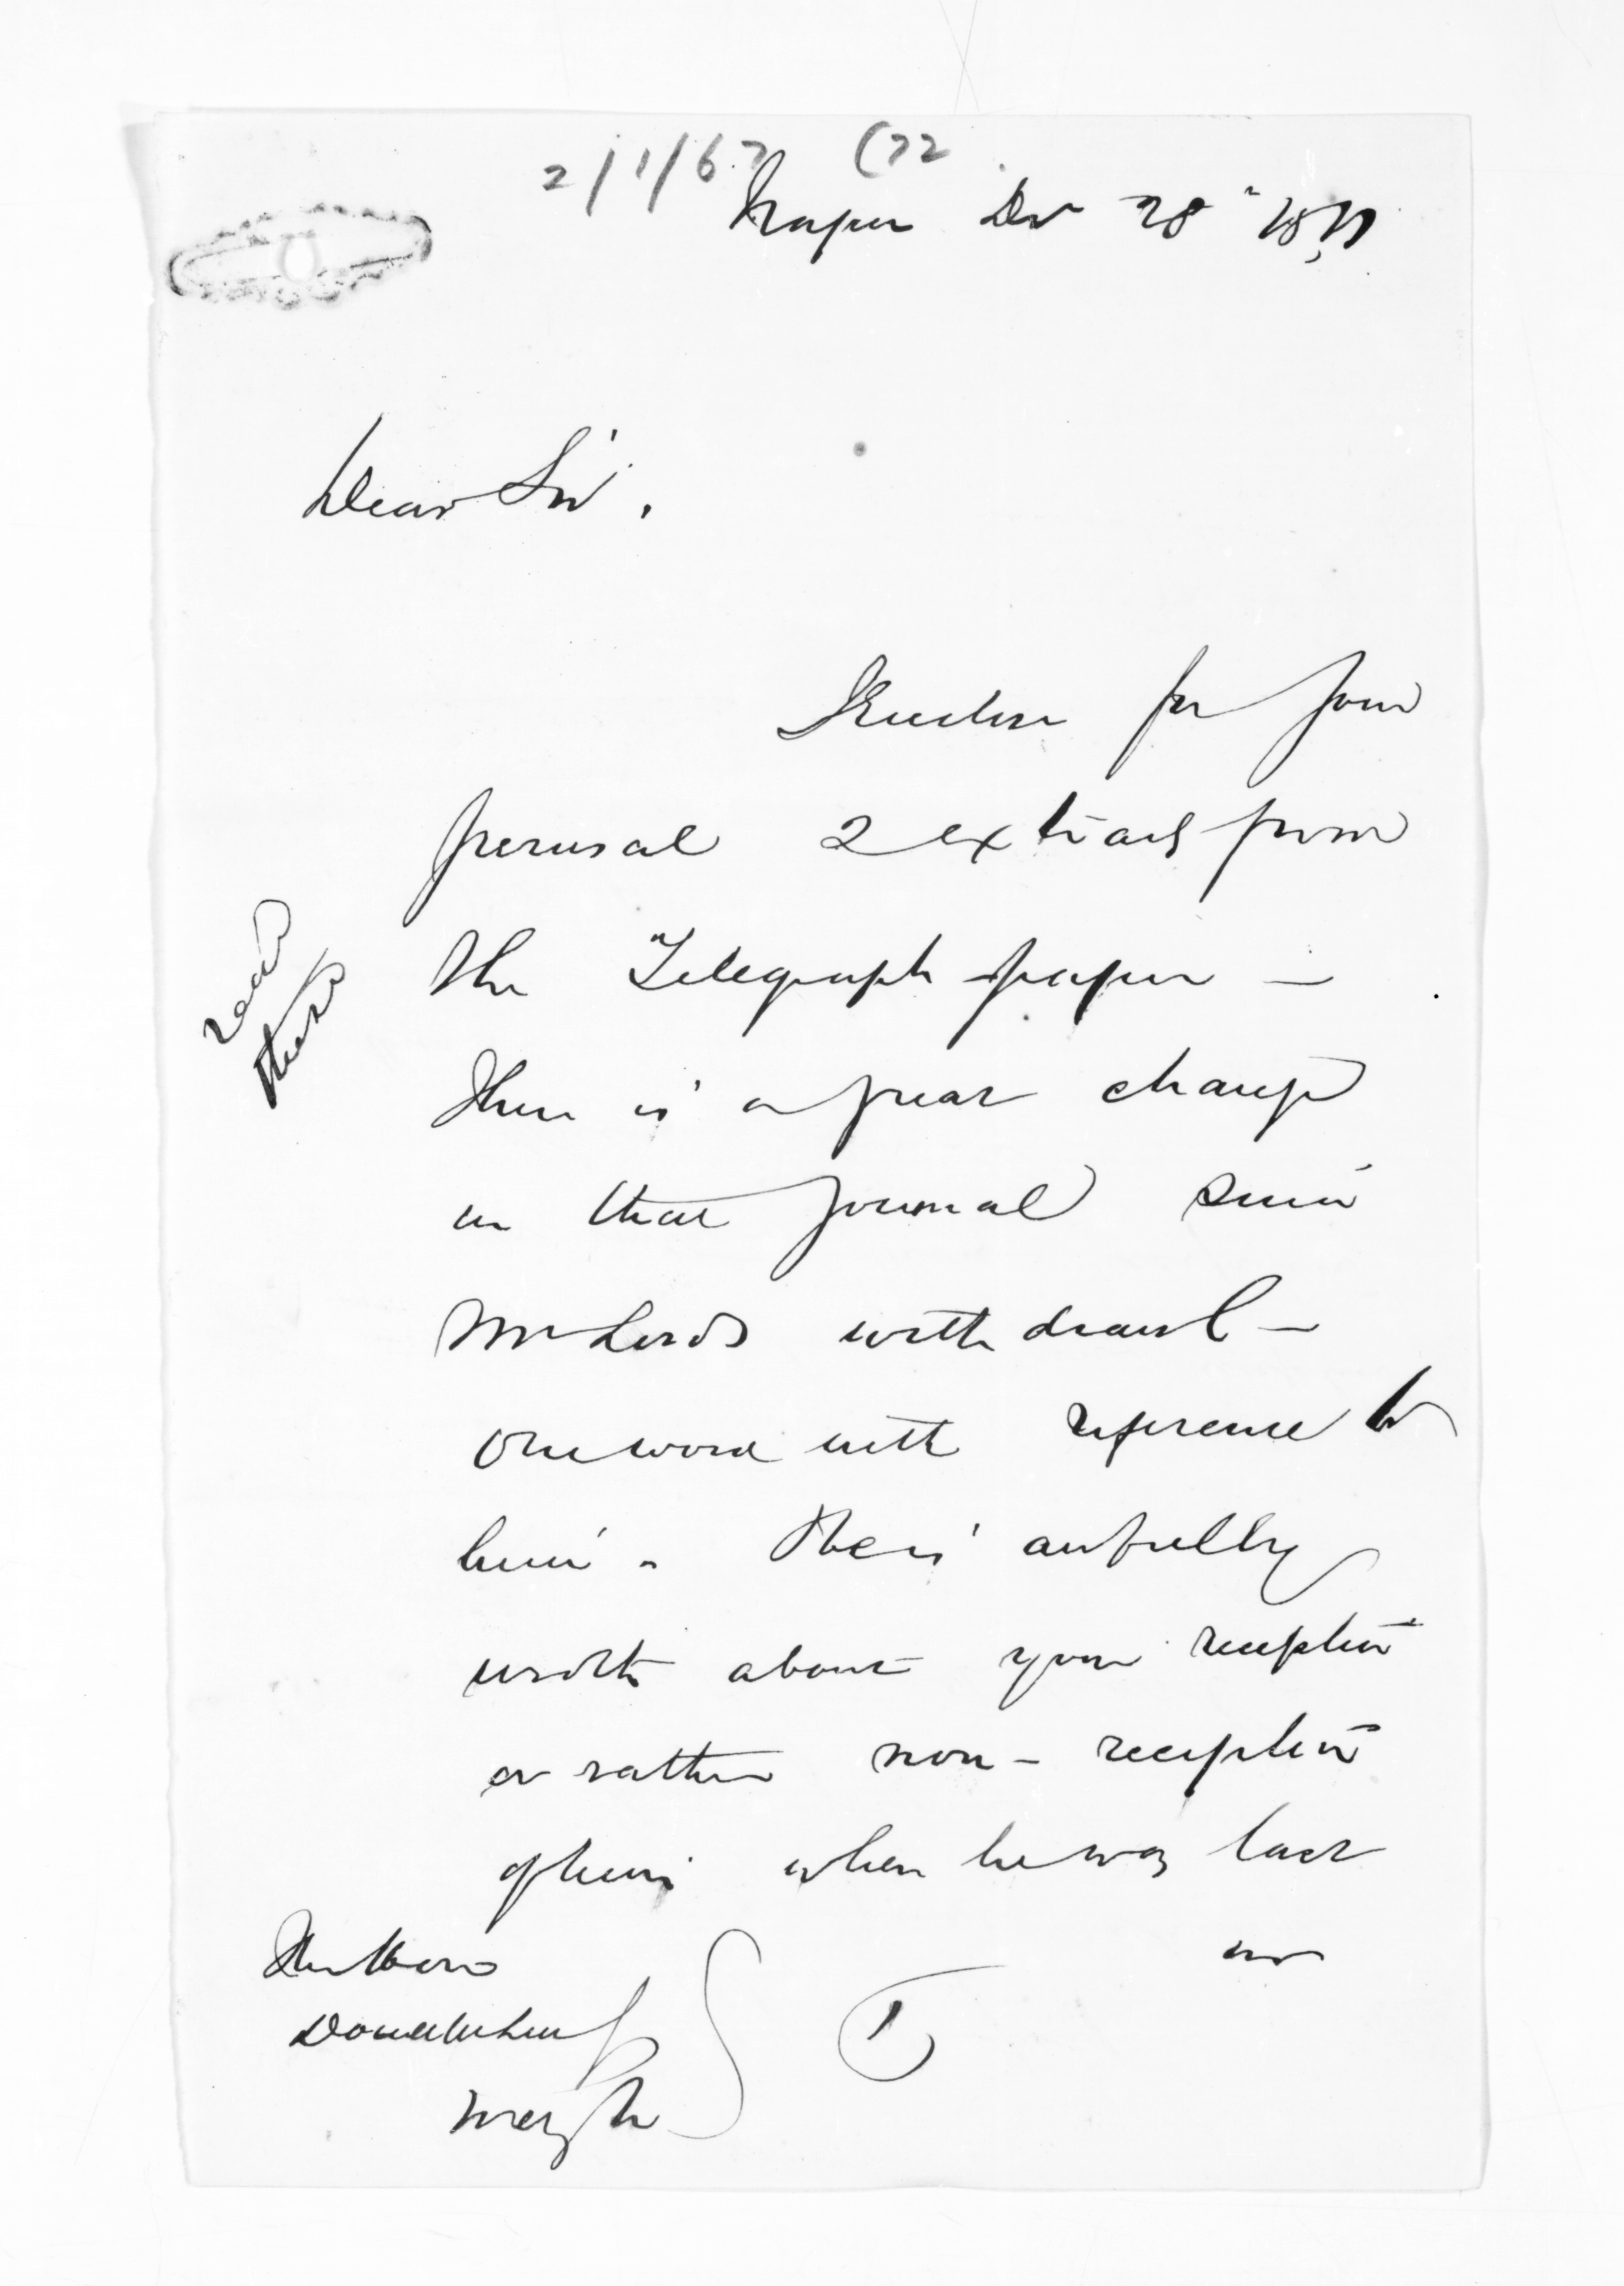 2/1/67 (22
Napier Dec 28th 1871
Dear Sir,
I Enclose for your
perusal 2 extracts from
the Telegraph paper —
read
these
There is a great change
in that journal since
Mr Lords withdrawl —
One word with reference to
him. He is awfully
wroth about your reception
or rather non-reception
of him when he was last
in
The Hon
Donald McLean
①